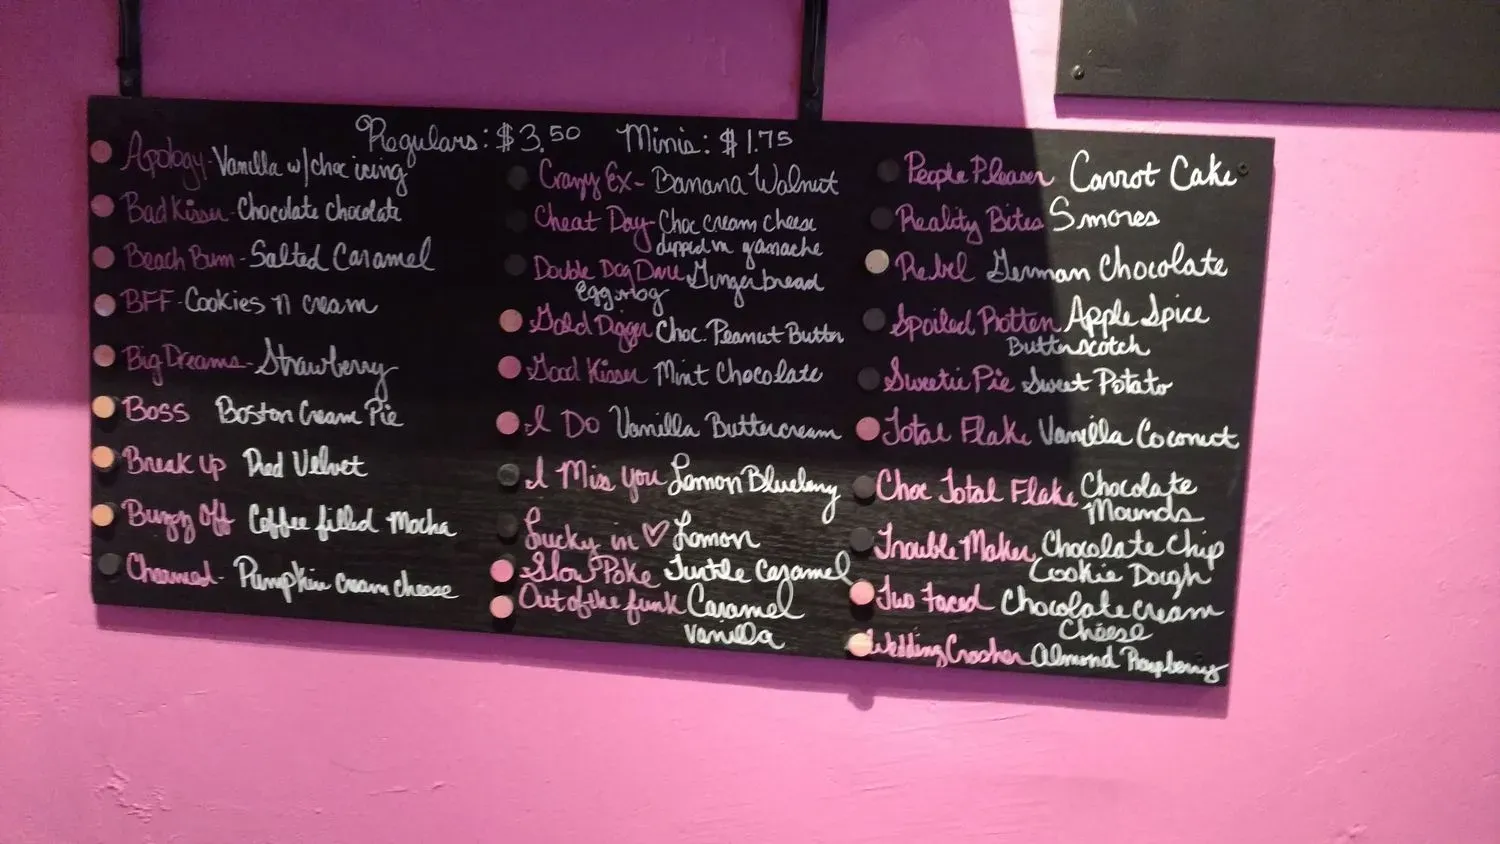 Regulars: $3.50 Minis: $1.75
Apology - Vanilla w/choc icing
Bad Kisser - Chocolate Chocolate
Beach Bum - Salted Caramel
BFF - Cookies n cream
Big Dreams - Strawberry
Boss Boston Cream Pie
Break Up Red Velvet
Buzz Off Coffee filled Mocha
Charmed - Pumpkin cream cheese
Crazy Ex - Banana Walnut
Cheat Day - Choc cream cheese
dipped in ganache
Double Dog Dare Gingerbread
Eggnog
Gold Digger Choc. Peanut Butter
Good Kisser Mint Chocolate
I Do Vanilla Buttercream
I Miss You Lemon Blueberry
Lucky in ♡ Lemon
Slow Poke Turtle Caramel
Out of the funk Caramel
Vanilla
People Pleaser Carrot Cake
Reality Bites Smores
Rebel German Chocolate
Spoiled Rotten Apple Spice
Butterscotch
Sweetie Pie Sweet Potato
Total Flake Vanilla Coconut
Choc Total Flake Chocolate
Mounds
Trouble Maker Chocolate Chip
Cookie Dough
Two Faced Chocolate cream
Cheese
Wedding Crasher Almond Raspberry